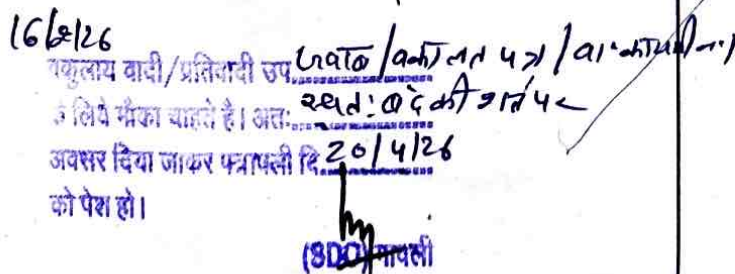 16/2/26
वकुलाय वादी/प्रतिवादी उप. जवाब/वकालत पत्र/वा.
के लिये मौका चाहते है। अतः स्वतः बंद की शर्त पर
अवसर दिया जाकर पत्रावली दि. 20/4/26
को पेश हो।
(SDO)